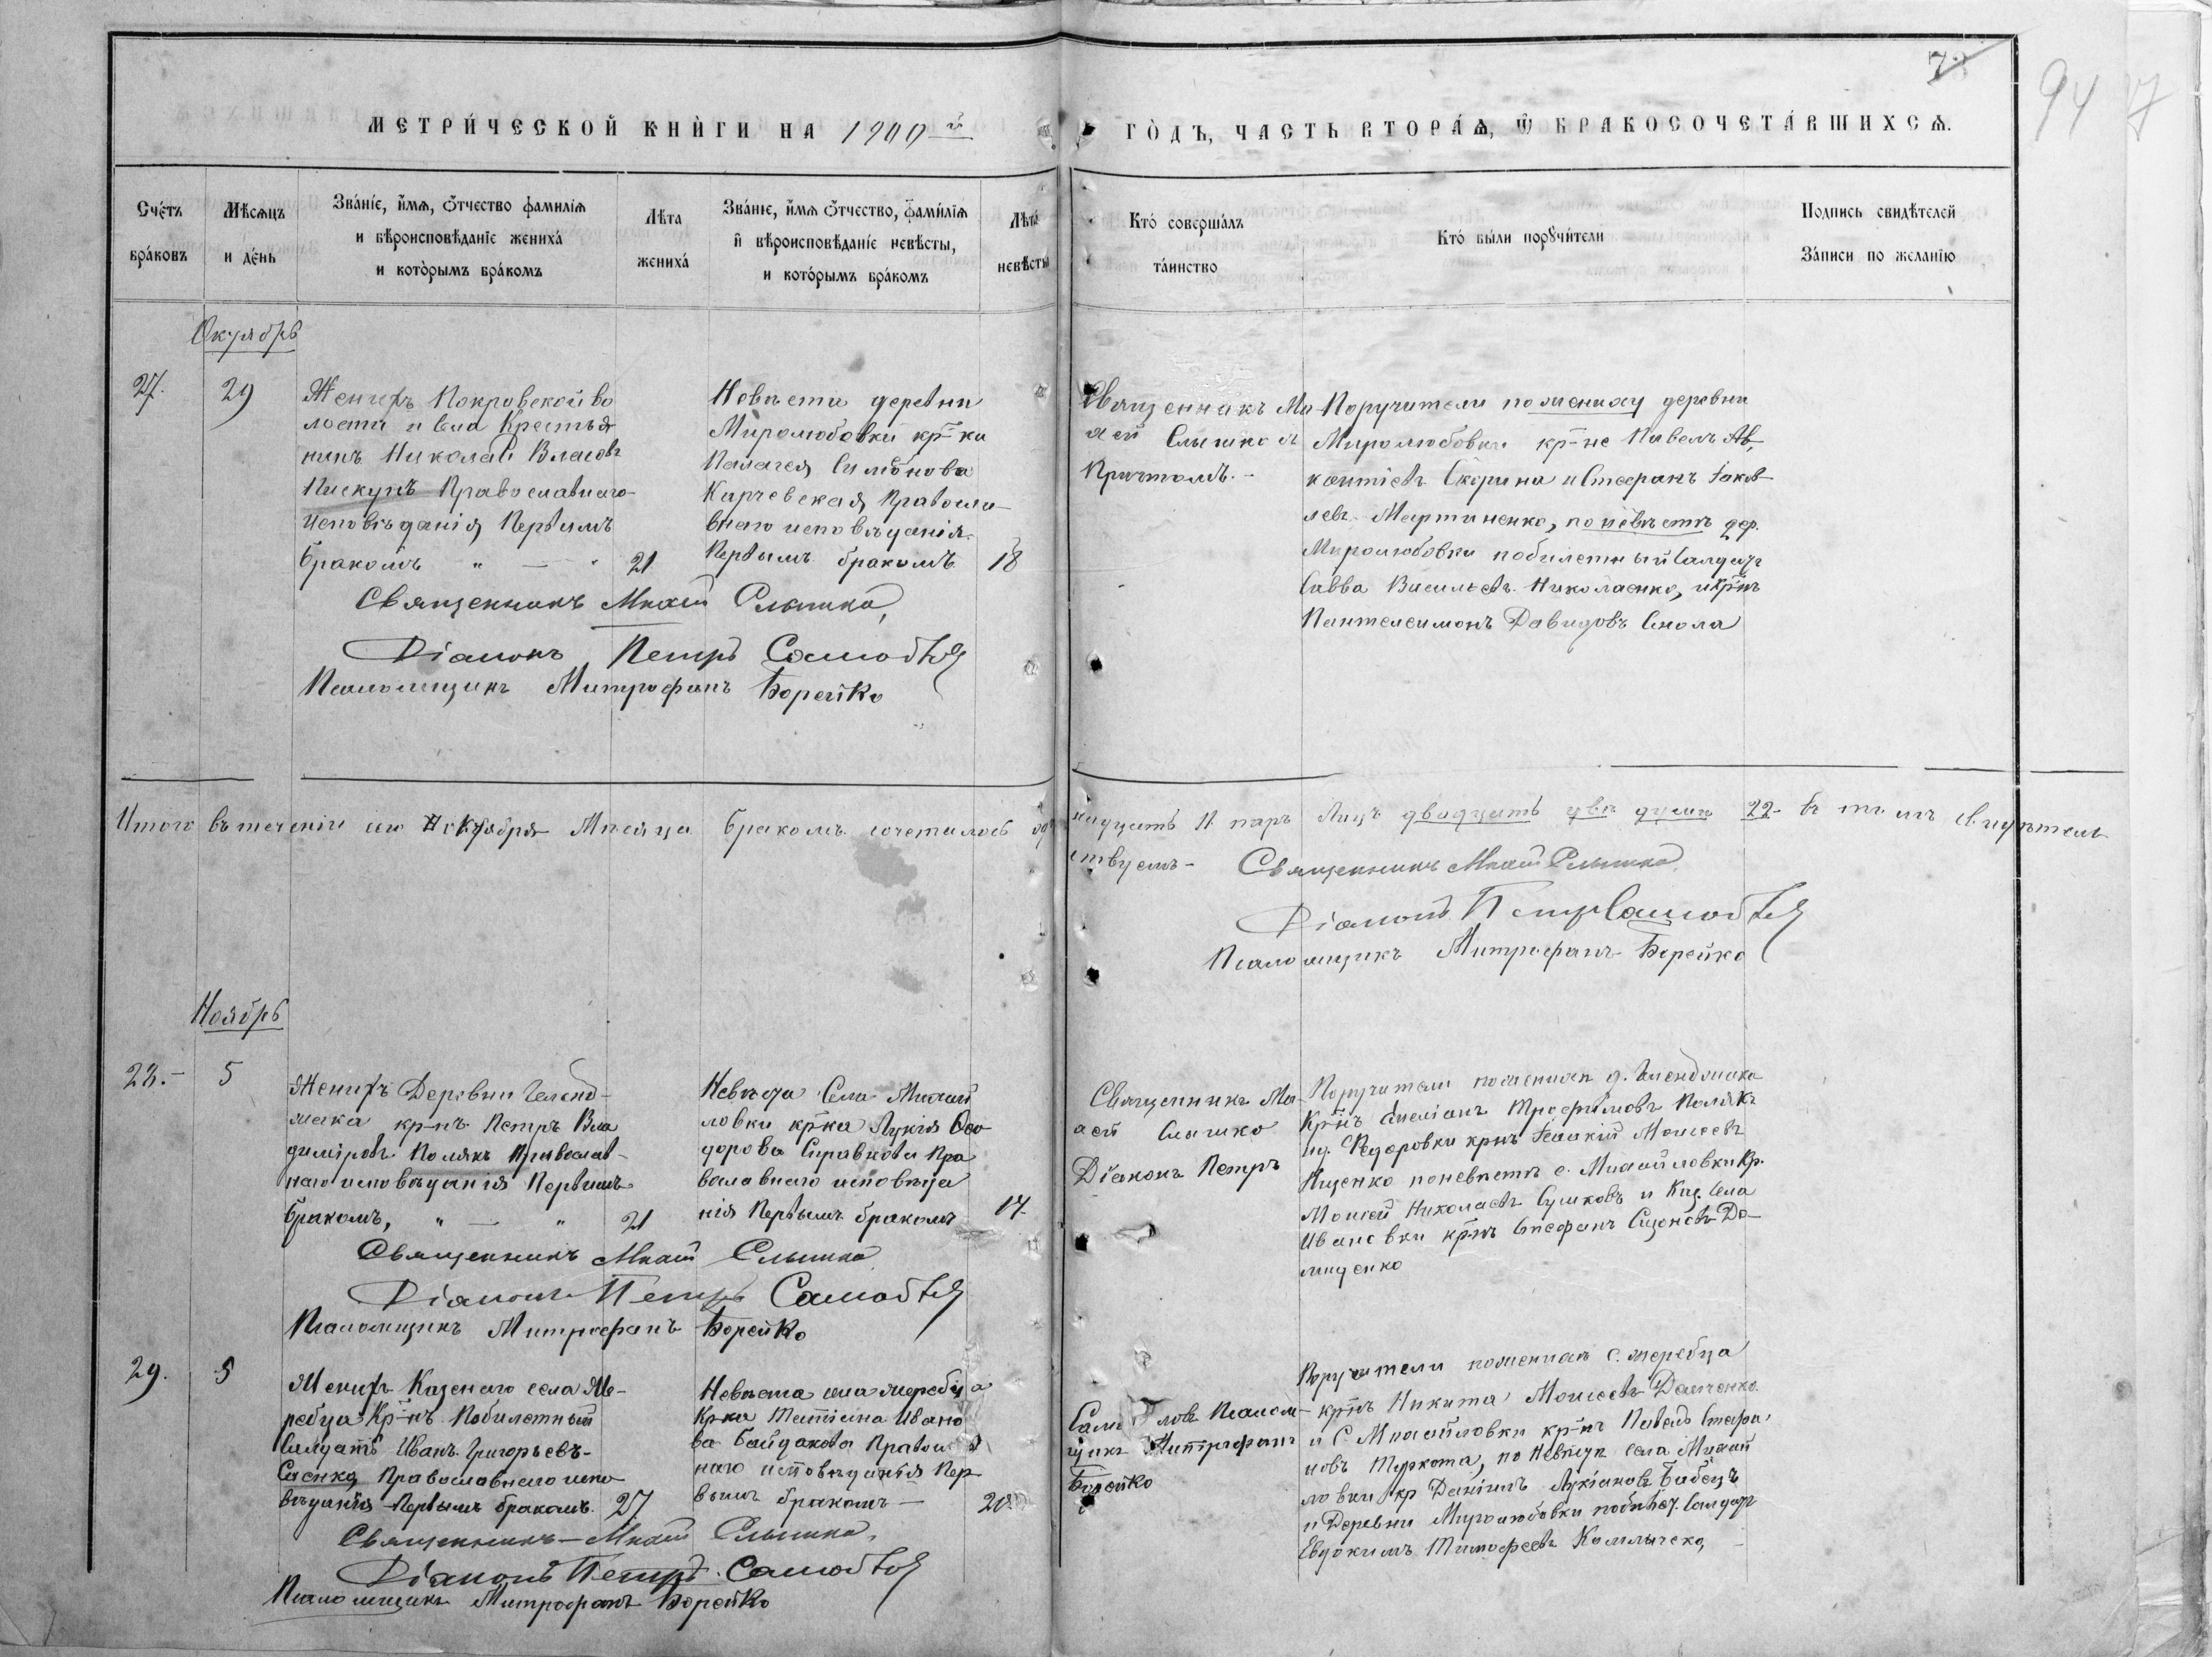 94
МЕТРИ́ЧЕСКОЙ КНИ́ГИ НА 1900 й
ГО́ДЪ, ЧАСТЬ ВТОРА́Ѧ, Ѿ БРАКОСОЧЕТА́ВШИХСѦ.
Сче́тъ бра́ковъ
Мѣ́сѧцъ и де́нь
Зва́нїе, и́мѧ, ѻ́тчество фамилїѧ
и вѣроисповѣданїе жениха́
и кото́рымъ бра́комъ
Лѣта жениха́
Зва́нїе, и́мѧ ѻ́тчество, фами́лїѧ
и вѣроисповѣданїе невѣ́сты,
и кото́рымъ бра́комъ
Лѣта невѣсты
Кто́ соверша́лъ
та́инство
Кто́ бы́ли порꙋчи́тели
Подпись свидѣтелей
За́писи по желанїю
Октябрь
27.
29
Женихъ Покровской во
лости и села Крестья
нинъ Николай Власовъ
Пискунъ Православнаго
исповѣданія, Первымъ
бракомъ " — "
21
Невѣста деревни
Миролюбовки кр-ка
Палагея Симонова
Карчевская, Правосла-
внаго исповѣданія
Первымъ бракомъ
18
Священникъ Ми-
Слышко съ
Причтомъ. -
Поручители по жениху деревни
Миролюбовки кр-не Павелъ
Скорина и Стефанъ Іаков-
левъ Мартиненко, по невѣстѣ дер.
Миролюбовки побилетный Салдатъ
Савва Васильевъ Николаенко, и кр-нъ
Пантелеимонъ Давидовъ
Священникъ Слышко,
Діаконъ Петръ
Псаломщикъ Митрофанъ Борейко
Итого въ теченіи сего Октября Мѣсяца бракомъ сочеталось
11 паръ Лицъ двадцать два душъ 22 въ чемъ свидѣтель
ствуемъ - Священникъ Слышко
Діаконъ Петръ
Псаломщикъ Митрофанъ Борейко
Ноябрь
28. -
5
Женихъ Деревни
кр-нъ Петръ Вла
диміровъ Полякъ Православ-
наго исповѣданія Первымъ
бракомъ, " — "
21
Невѣста Села Михай
ловки кр-ка Лукія Ѳео
дорова Пра
вославнаго исповѣда
нія Первымъ бракомъ
17.
Священникъ
Слышко
Діаконъ Петръ
Поручители по женихѣ д.
Кр-нъ Трофимовъ Полякъ
Федоровки кр-нъ Моисеевъ
по невѣстѣ с. Михайловки Кр.
Моисей Николаевъ Сушковъ и Каз. Села
Ивановки кр-нъ Стефанъ До-
мищенко
Священникъ Слышко
Діаконъ Петръ
Псаломщикъ Митрофанъ Борейко
29.
5
Женихъ Казенаго села Же-
ребца Кр-нъ Побилетный
Салдатъ Иванъ Григорьевъ
Саенко, Православнаго испо
вѣданія Первымъ бракомъ
27.
Невѣста села Жеребца
Кр-ка Татіана Ивано
ва Байдакова Правосл
наго исповѣданія Пер
вымъ бракомъ —
20
Псалом-
щикъ Митрофанъ
Борейко
Поручители по женихѣ с. Жеребца
кр-нъ Никита Моисеевъ
и С. Михайловки кр-нъ Павелъ Стефа
новъ Туркота, по Невѣстѣ села Михай
ловки кр Даніилъ Лукіановъ Бабецъ
и Деревни Миролюбовки Салдатъ
Евдокимъ Тимофеевъ
Священникъ — Слышко,
Діаконъ Петръ
Псаломщикъ Митрофанъ Борейко